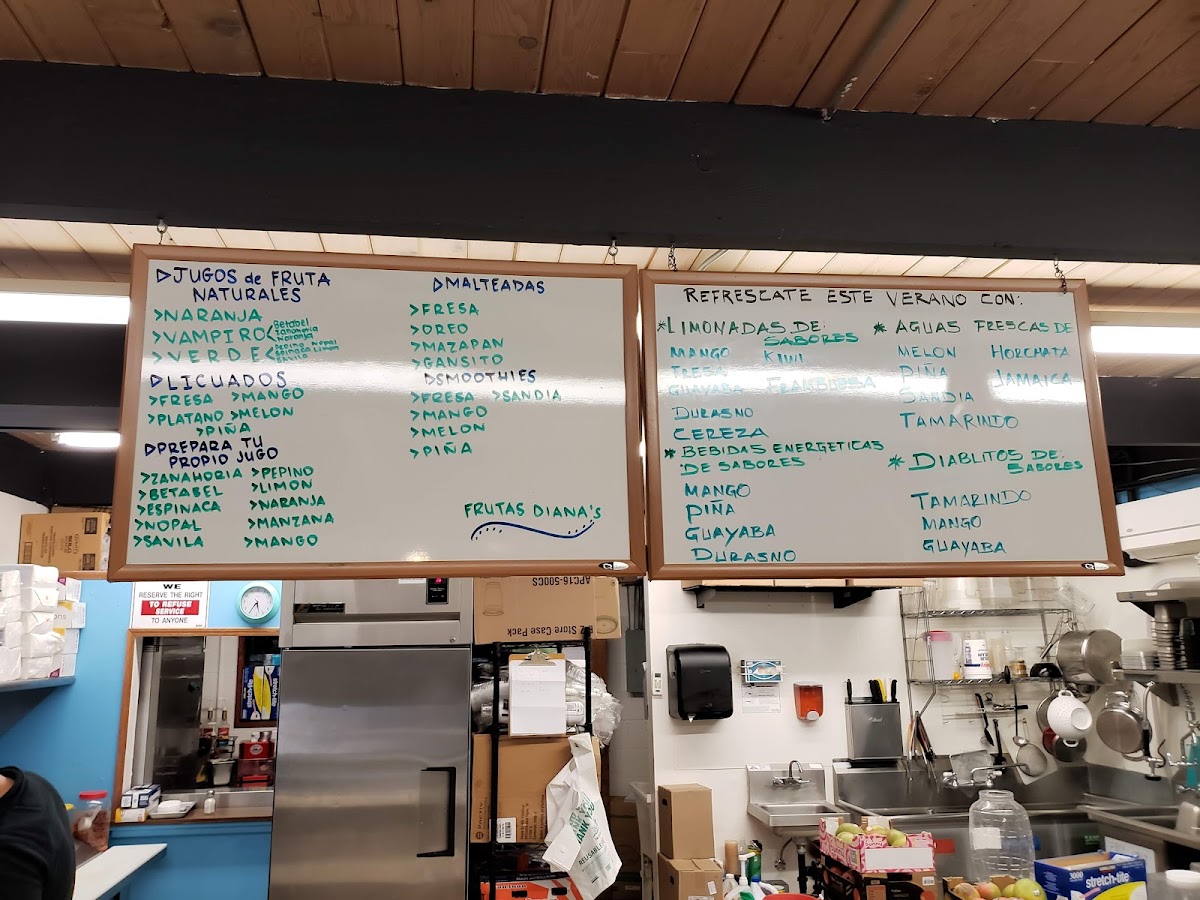 ▷JUGOS de FRUTA
NATURALES
>NARANJA
>VAMPIRO< Betabel
Zanahoria
Naranja
>VERDE< Pepino Nopal
Espinaca Limon
Savila
▷LICUADOS
>FRESA >MANGO
>PLATANO >MELON
>PIÑA
▷PREPARA TU
PROPIO JUGO
>ZANAHORIA >PEPINO
>BETABEL >LIMON
>ESPINACA >NARANJA
>NOPAL >MANZANA
>SAVILA >MANGO
▷MALTEADAS
>FRESA
>OREO
>MAZAPAN
>GANSITO
▷SMOOTHIES
>FRESA >SANDIA
>MANGO
>MELON
>PIÑA
FRUTAS DIANA'S
REFRESCATE ESTE VERANO CON:
*LIMONADAS DE:
SABORES
MANGO KIWI
FRESA
GUAYABA FRAMBUESA
DURASNO
CEREZA
* BEBIDAS ENERGETICAS
DE SABORES
MANGO
PIÑA
GUAYABA
DURASNO
* AGUAS FRESCAS DE
MELON HORCHATA
PIÑA JAMAICA
SANDIA
TAMARINDO
* DIABLITOS DE:
SABORES
TAMARINDO
MANGO
GUAYABA
WE
RESERVE THE RIGHT
TO REFUSE
SERVICE
TO ANYONE
APC16-500CS
EZ Store Case Pack
THANK YOU
stretch-tite
3000
stretch-tite